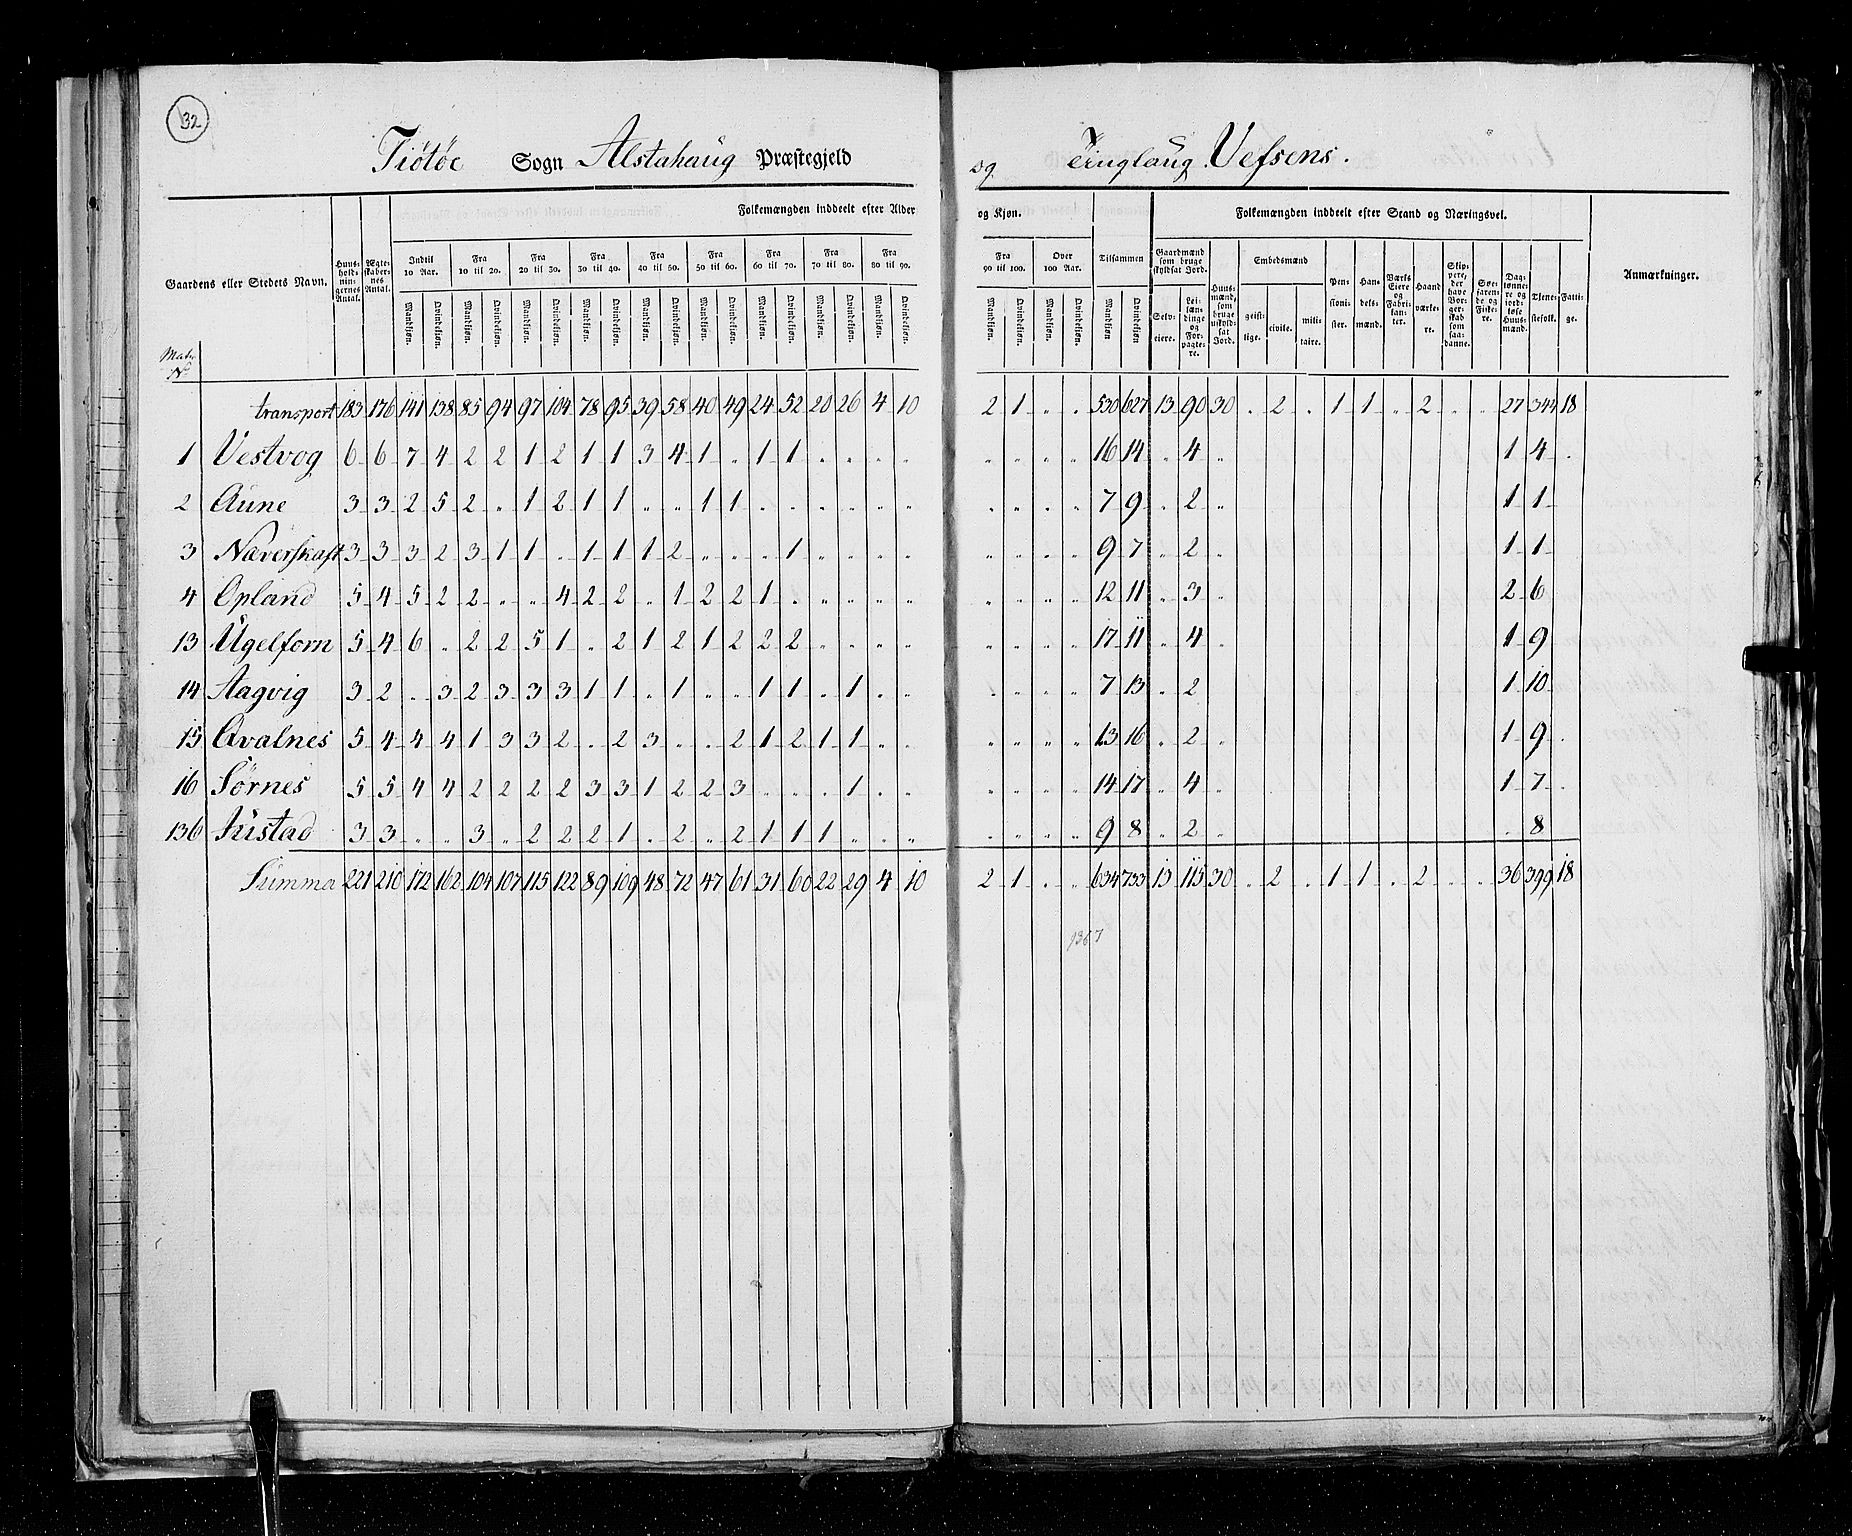 32
Tiötöe Sogn Alstahaug Præstegjeld og Tinglaug Vefsens.
Folkemængden inddeelt efter Alder og Kjøn. Folkemængden inddeelt efter Stand og Næringsvei.
Gaardens eller Stedets Navn. Huusholdningernes Antal. Ægteskabernes Antal. Indtil 10 Aar. Fra 10 til 20. Fra 20 til 30. Fra 30 til 40. Fra 40 til 50. Fra 50 til 60. Fra 60 til 70. Fra 70 til 80. Fra 80 til 90. Fra 90 til 100. Over 100 Aar. Tilsammen Gaardmænd som bruge skyldsat Jord. Huusmænd, som bruge uskyldsat Jord. Embedsmænd Pensionister. Handelsmænd. Værks Eiere og Fabrikanter. Haandværkere. Skippere, der have Borgerskab som saadanne. Søefarende og Fiskere. Daglønnere og jordløse Huusmænd. Tjenestefolk. Fattige. Anmærkninger.
Mandkjøn. Qvindekjøn. Mandkjøn. Qvindekjøn. Mandkjøn. Qvindekjøn. Mandkjøn. Qvindekjøn. Mandkjøn. Qvindekjøn. Mandkjøn. Qvindekjøn. Mandkjøn. Qvindekjøn. Mandkjøn. Qvindekjøn. Mandkjøn. Qvindekjøn. Mandkjøn. Qvindekjøn. Mandkjøn. Qvindekjøn. Mandkjøn Qvindekjøn. Selveiere. Leilændinge og Forpagtere. geistlige. civile. militaire.
Matr. No
transport 183 176 141 138 85 94 97 104 78 95 39 58 40 49 24 52 20 26 4 10 2 1 " " 530 627 13 90 30 " 2 " 1 1 " 2 " " 27 344 18
1 Vestvog 6 6 7 4 2 2 1 2 1 1 3 4 1 " 1 1 " " " " " " " " 16 14 " 4 " 1 4 "
2 Aune 3 3 2 5 2 " 1 2 1 1 " " 1 1 " " " " " " " " " " 7 9 " 2 " 1 1
3 Næverskaft 3 3 3 2 3 1 1 " 1 1 1 2 " " " 1 " " " " " " " " 9 7 " 2 " 1 1
4 Opland 5 4 5 2 2 " " 4 2 2 " 1 2 2 1 " " " " " " " " " 12 11 " 3 " 2 6
13 Ugelforn 5 4 6 " 2 2 5 1 " 2 1 2 1 2 2 2 " " " " " " " " 17 11 " 4 " 1 9
14 Aagvig 3 2 " 3 2 3 3 3 1 1 " 1 " " 1 1 " 1 " " " " " " 7 13 " 2 1 10
15 Qvalnes 5 4 4 4 1 3 3 2 " 2 3 " " 2 1 2 1 1 " " " " " " 13 16 " 2 " 1 9 "
16 Sörnes 5 5 4 4 2 2 2 2 3 3 1 2 2 3 " " " 1 " " " " " " 14 17 " 4 " 1 7 "
136 Justad 3 3 " " 3 " 2 2 2 1 " 2 " 2 1 1 1 " " " " " " " 9 8 " 2 " " 8
Summa 221 210 172 162 104 107 115 122 89 109 48 72 47 61 31 60 22 29 4 10 2 1 " " 634 733 13 115 30 " 2 " 1 1 " 2 " " 36 399 18
1367